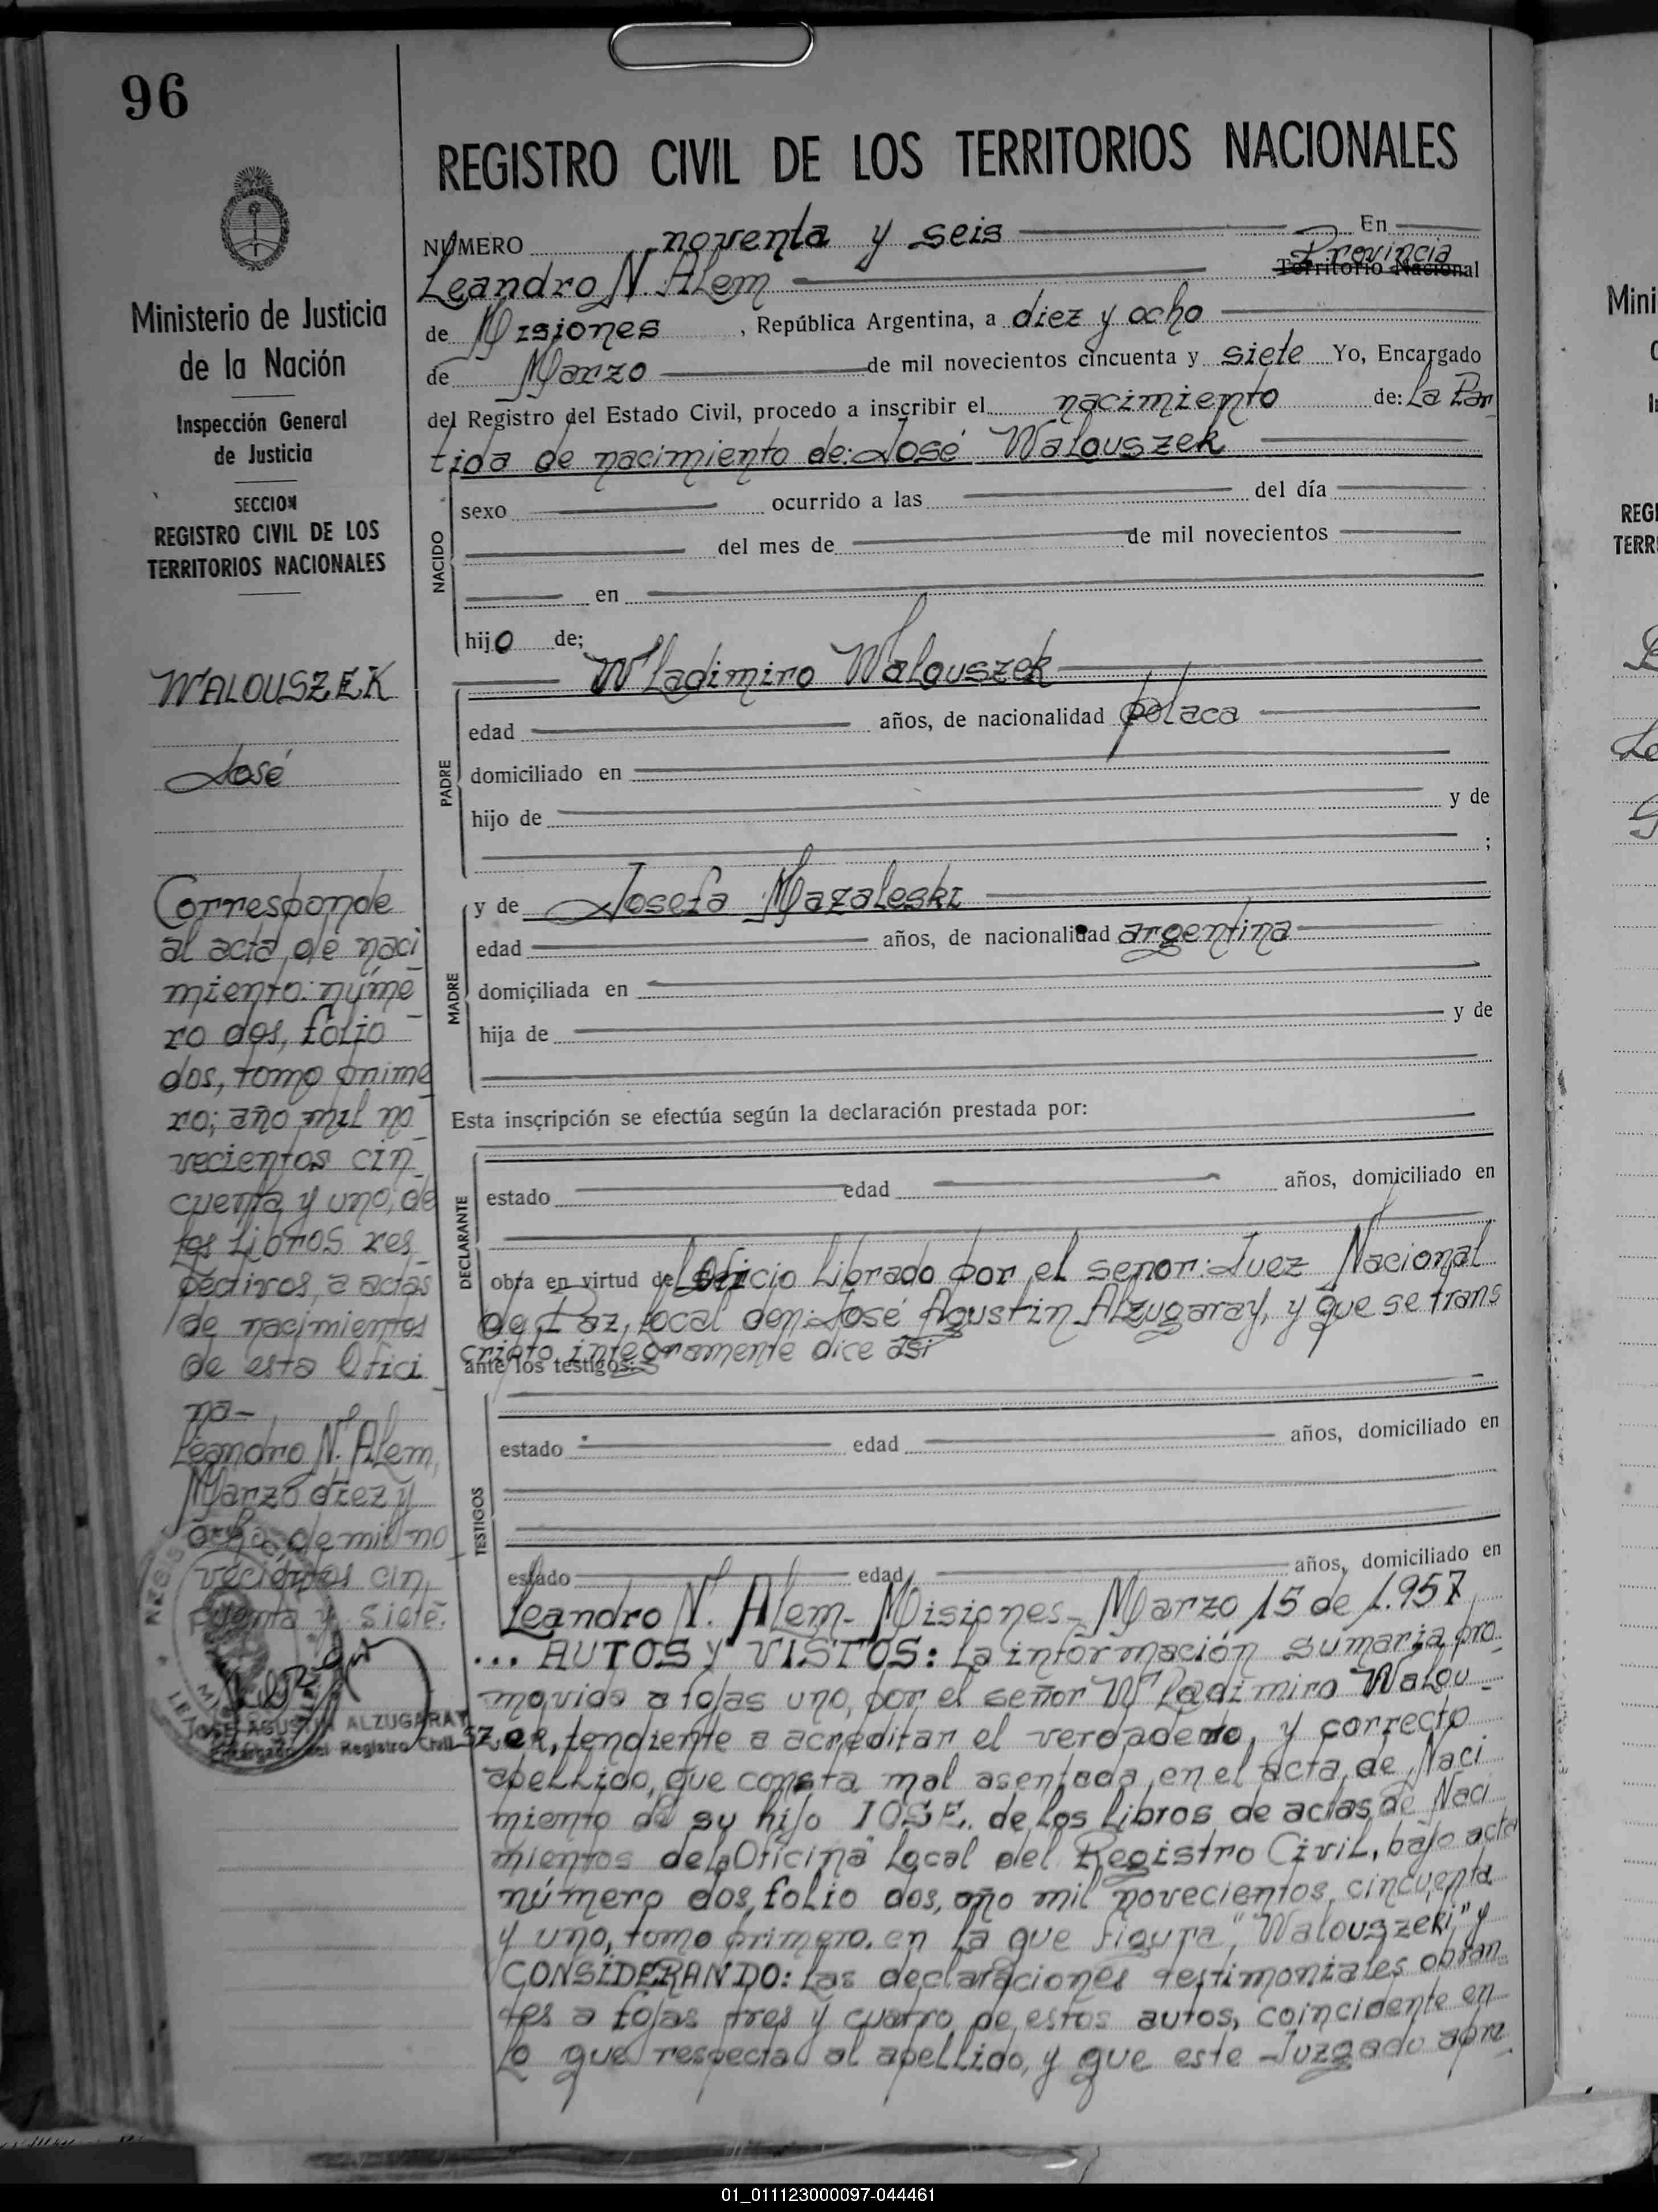 96
Ministerio de Justicia
de la Nación
Inspección General
de Justicia
SECCION
REGISTRO CIVIL DE LOS
TERRITORIOS NACIONALES
WALOUSZEK
José
Corresponde
al acta de naci
miento: núme
ro dos, folio
dos, tomo prime
ro; año mil no
vecientos cin
cuenta y uno, de
los libros res
pectivos a actas
de nacimientos
de esta Ofici
na-
Leandro N. Alem,
Marzo diez y
ocho de mil no
vecientos cin
cuenta y siete.
JOSE AGUSTIN ALZUGARAY
Encargado del Registro Civil
REGISTRO CIVIL DE LOS TERRITORIOS NACIONALES
NÚMERO noventa y seis En
Leandro N. Alem Provincia Territorio Nacional
de Misiones, República Argentina, a diez y ocho
de Marzo de mil novecientos cincuenta y siete Yo, Encargado
del Registro del Estado Civil, procedo a inscribir el nacimiento de: La Par
tida de nacimiento de: José Walouszek
NACIDO
sexo ocurrido a las del día
del mes de de mil novecientos
en
hijo de;
Wladimiro Walouszek
PADRE
edad años, de nacionalidad polaca
domiciliado en
hijo de y de
;
y de Josefa Mazaleski
MADRE
edad años, de nacionalidad argentina
domiciliada en
hija de y de
Esta inscripción se efectúa según la declaración prestada por:
DECLARANTE
estado edad años, domiciliado en
obra en virtud del Oficio librado por el señor: Juez Nacional
de Paz, local don: José Agustin Alzugaray, y que se trans
cripto integramente dice asi
ante los testigos:
TESTIGOS
estado edad años, domiciliado en
estado edad años, domiciliado en
Leandro N. Alem- Misiones- Marzo 15 de 1.957
... AUTOS Y VISTOS: La información sumaria pro
movida a fojas uno, por el señor Wladimiro Walou-
szek, tendiente a acreditar el verdadero, y correcto
apellido, que consta mal asentada en el acta de Naci
miento de su hijo JOSE. de los libros de actas de Naci
mientos de la Oficina Local del Registro Civil, bajo acta
número dos, folio dos, año mil novecientos cincuenta
y uno, tomo primero. en la que figura "Walouszeki," y
CONSIDERANDO: Las declaraciones testimoniales obran
tes a fojas tres y cuatro de estos autos, coincidente en
lo que respecta al apellido, y que este Juzgado apre
01_011123000097-044461